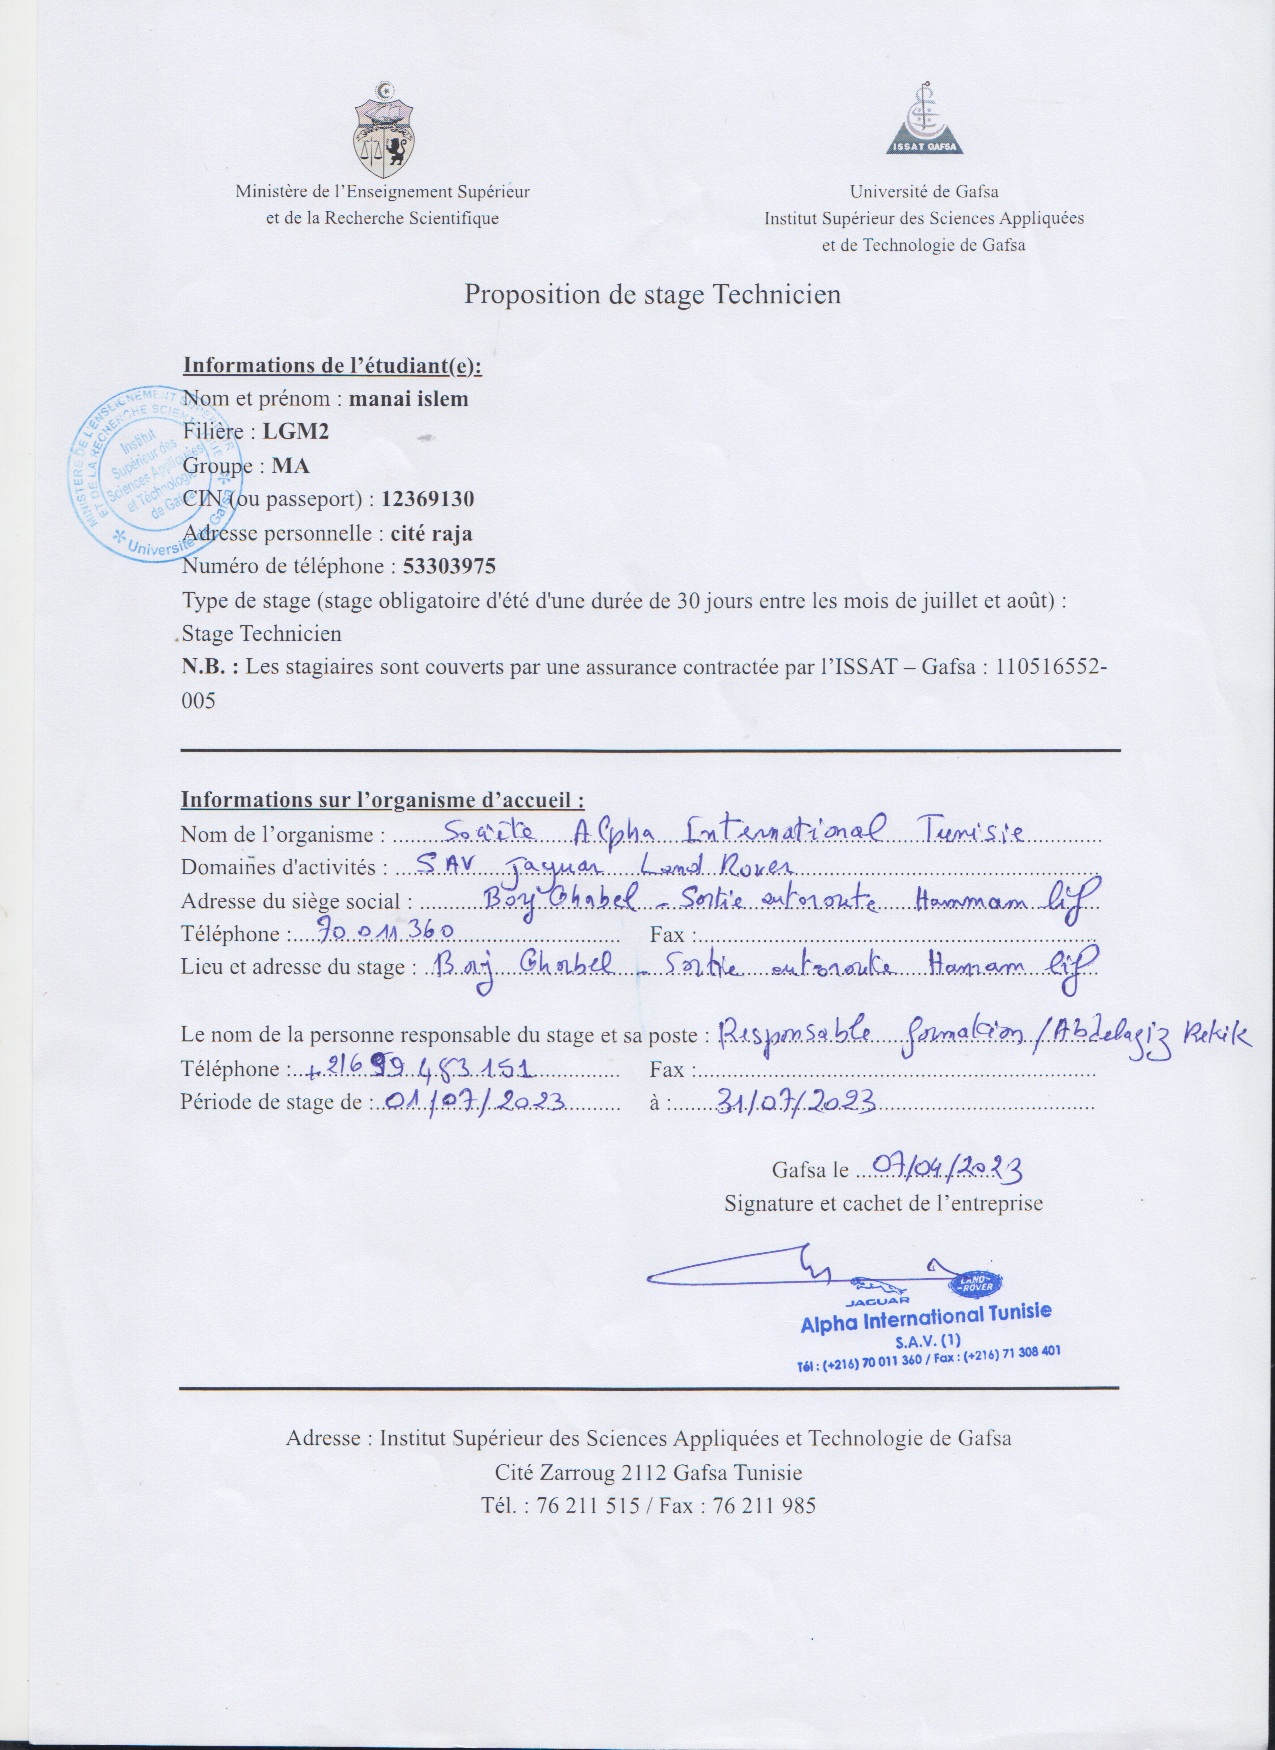 ISSAT GAFSA
Ministère de l'Enseignement Supérieur
et de la Recherche Scientifique
Université de Gafsa
Institut Supérieur des Sciences Appliquées
et de Technologie de Gafsa
Proposition de stage Technicien
Informations de l'étudiant(e):
Nom et prénom : manai islem
Filière : LGM2
Groupe : MA
CIN (ou passeport) : 12369130
Adresse personnelle : cité raja
Numéro de téléphone : 53303975
Type de stage (stage obligatoire d'été d'une durée de 30 jours entre les mois de juillet et août) :
Stage Technicien
N.B. : Les stagiaires sont couverts par une assurance contractée par l'ISSAT – Gafsa : 110516552-
005
MINISTERE DE L'ENSEIGNEMENT SUPERIEUR
ET DE LA RECHERCHE SCIENTIFIQUE
Institut
Supérieur des
Sciences Appliquées
et Technologie
de Gafsa
Université de Gafsa
Informations sur l'organisme d'accueil :
Nom de l'organisme : Société Alpha International Tunisie
Domaines d'activités : SAV Jaguar Land Rover
Adresse du siège social : Borj Ghorbel - Sortie autoroute Hammam lif
Téléphone : 70 011 360 Fax :
Lieu et adresse du stage : Borj Ghorbel - Sortie autoroute Hamam lif
Le nom de la personne responsable du stage et sa poste : Responsable formation / Abdelaziz Rekik
Téléphone : +216 99 483 151 Fax :
Période de stage de : 01/07/2023 à : 31/07/2023
Gafsa le 07/04/2023
Signature et cachet de l'entreprise
JAGUAR
LAND-
-ROVER
Alpha International Tunisie
S.A.V. (1)
Tél : (+216) 70 011 360 / Fax : (+216) 71 308 401
Adresse : Institut Supérieur des Sciences Appliquées et Technologie de Gafsa
Cité Zarroug 2112 Gafsa Tunisie
Tél. : 76 211 515 / Fax : 76 211 985